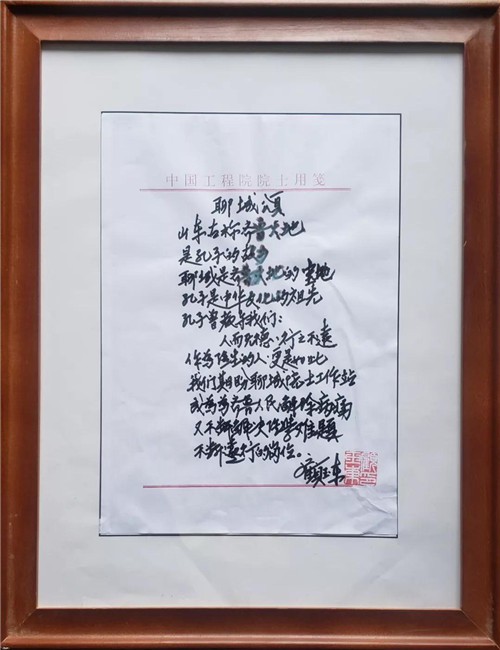 中国工程院院士用笺
聊城颂
山东古称齐鲁大地
是孔子的故乡
聊城是齐鲁大地的宝地
孔子是中华文化的祖先
孔子曾教导我们：
人而无德，行之不远
作为医生的人更是如此
我们期盼聊城院士工作站
成为为齐鲁人民解除病痛
又不断解决医学难题
不断远行的岗位。
顾玉东